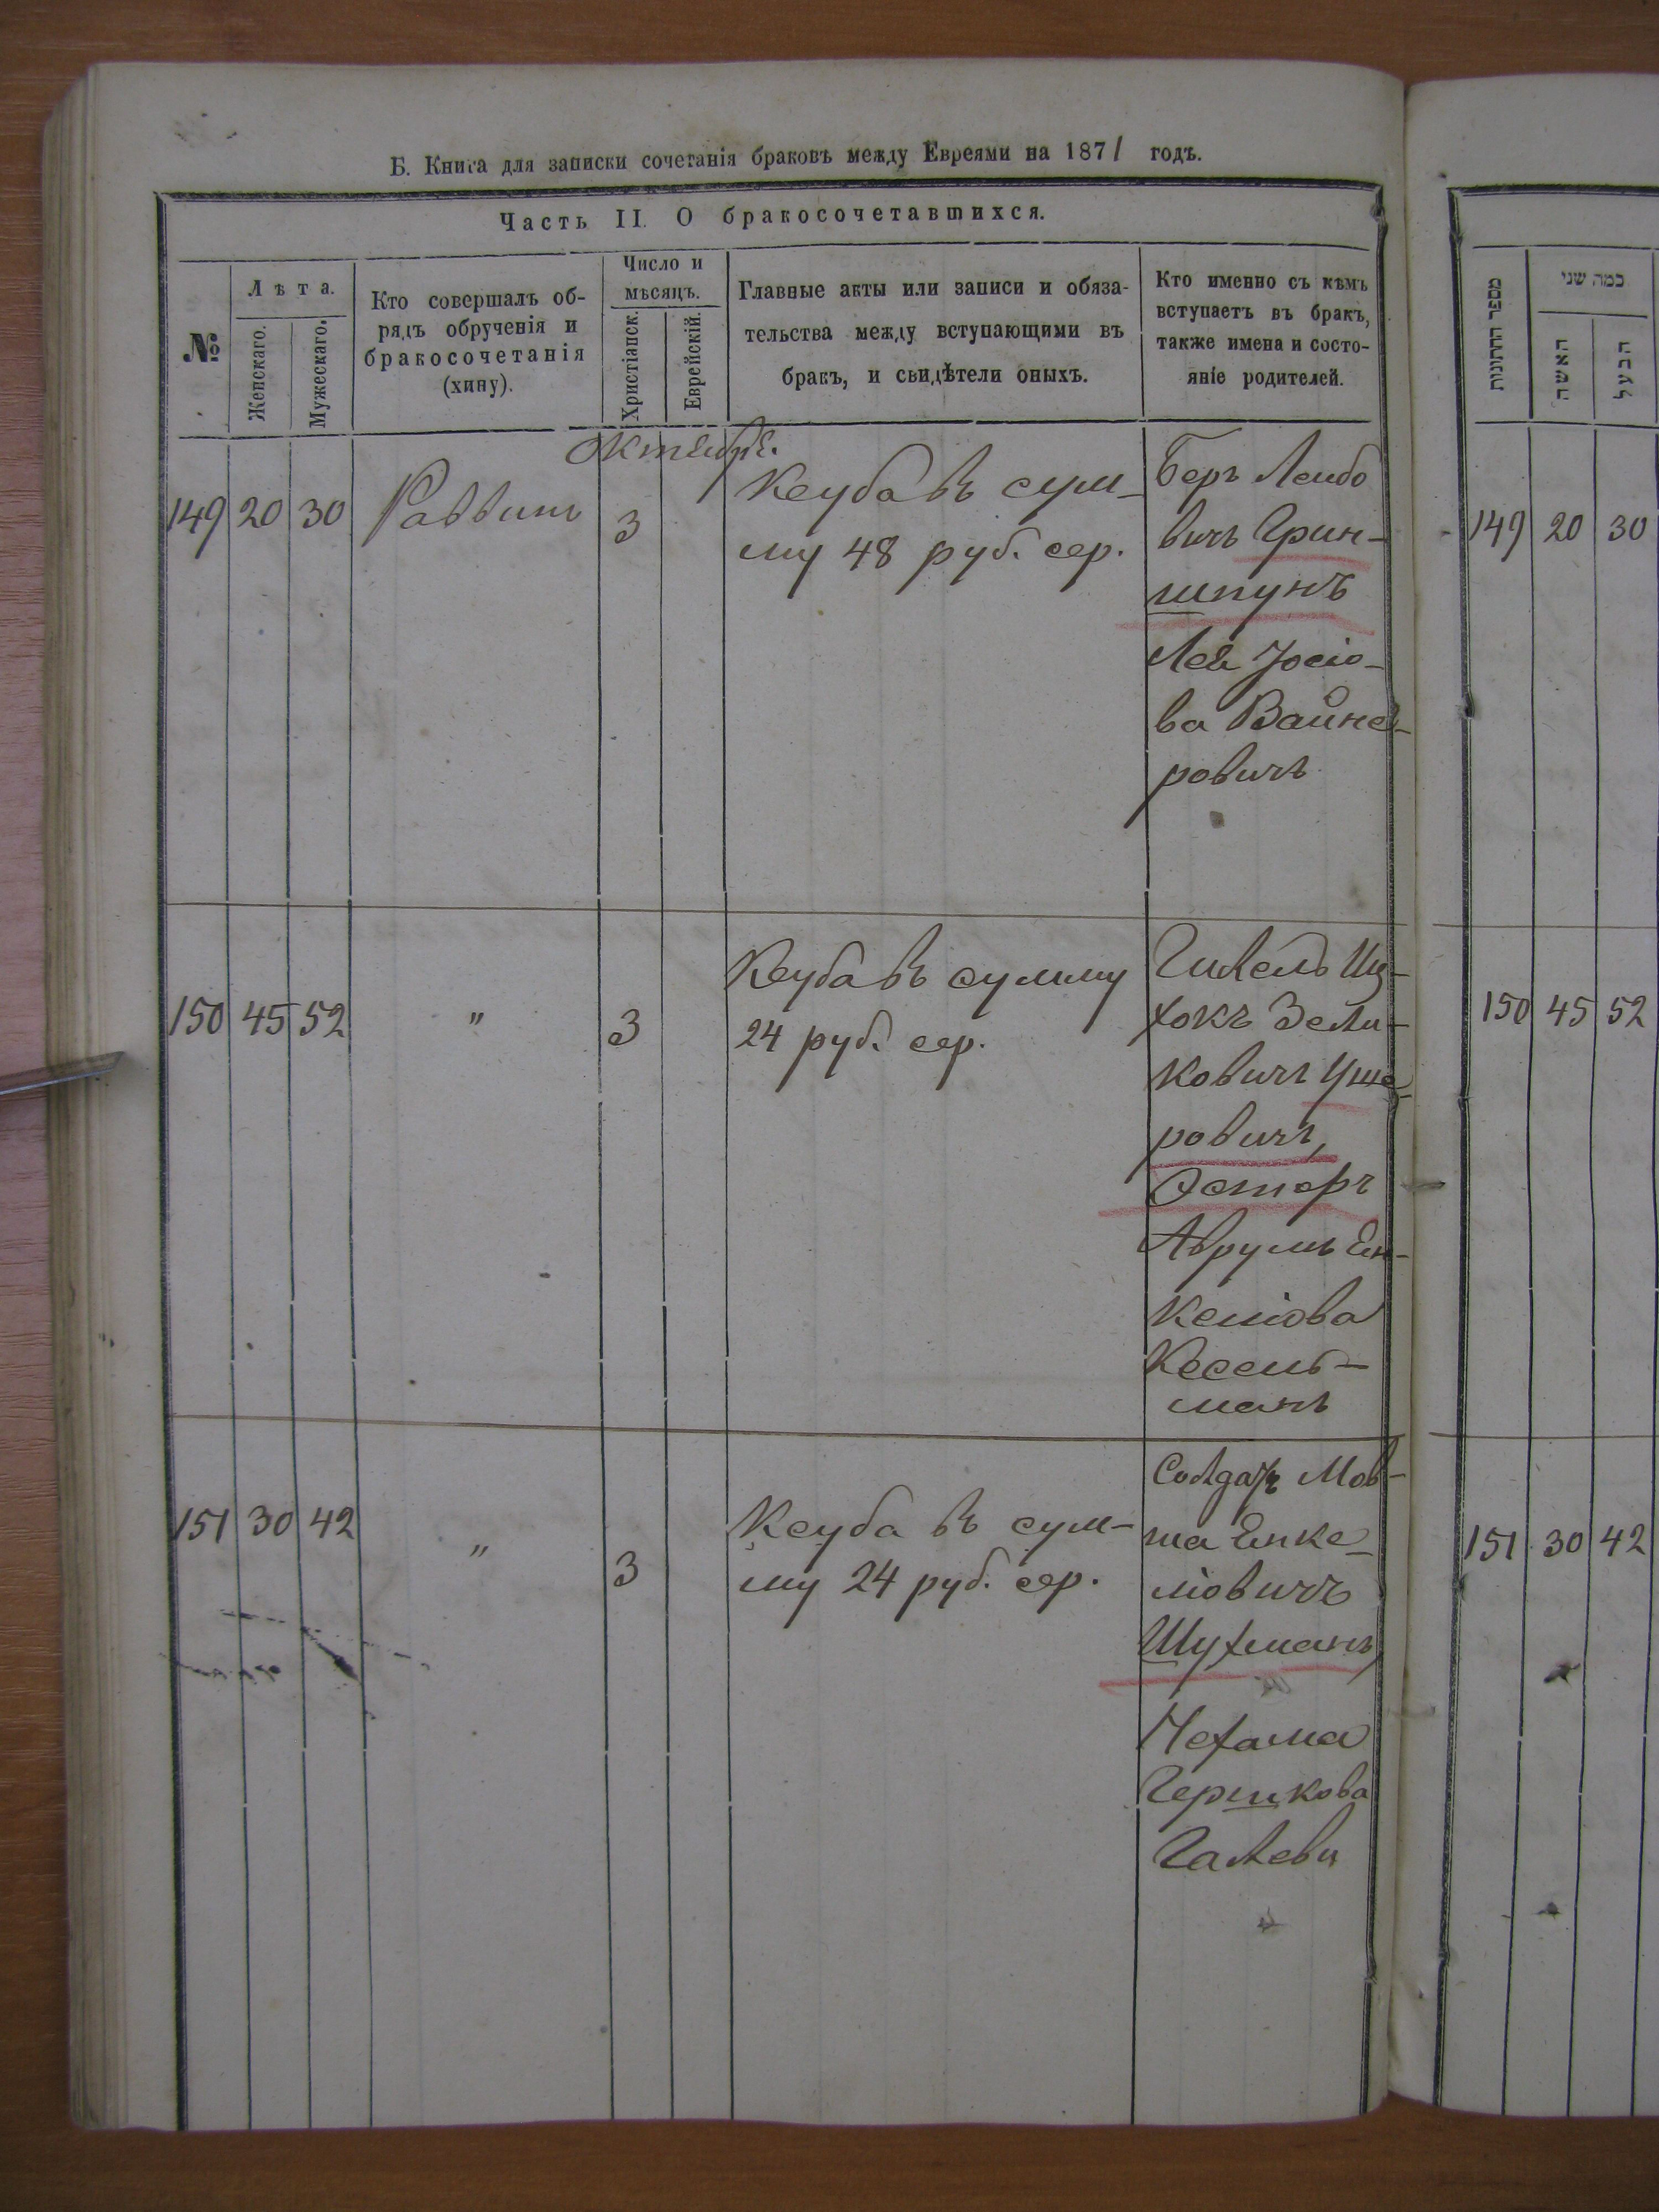 Б. Книга для записки сочетанія браковъ между Евреями на 1871 годъ.
Часть II. О бракосочетавшихся.
№
Лѣта.
Женскаго.
Мужескаго.
Кто совершалъ об-
рядъ обрученія и
бракосочетанія
(хипу).
Число и
мѣсяцъ.
Христіанск.
Еврейскій.
Главные акты или записи и обяза-
тельства между вступающими въ
бракъ, и свидѣтели оныхъ.
Кто именно съ кѣмъ
вступаетъ въ бракъ,
также имена и состо-
яніе родителей.
Октября.
149 20 30 Раввинъ 3
Кеуба въ сум-
му 48 руб. сер.
Беръ Лейбо
вичъ Грин-
шпунъ
Лея Іосіо-
ва Вайне-
ровичъ
150 45 52 " 3
Кеуба въ сумму
24 руб. сер.
Гилель Иц-
хокъ Зели-
ковичъ Уше-
ровичъ,
Эстеръ
Аврумъ Ен-
келіова
Кесель-
манъ
151 30 42 " 3
Кеуба въ сум-
му 24 руб. сер.
Солдатъ Мов-
ша Енке-
ліовичъ
Шухманъ,
Нехама
Гершкова
Галеви
מספר החתונות
כמה שני
האשה
הבעל
149 20 30
150 45 52
151 30 42